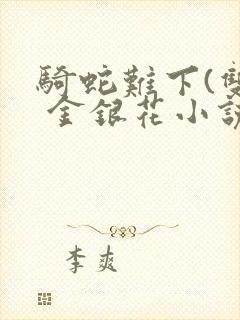 騎蛇難下(
金銀花小說
李爽